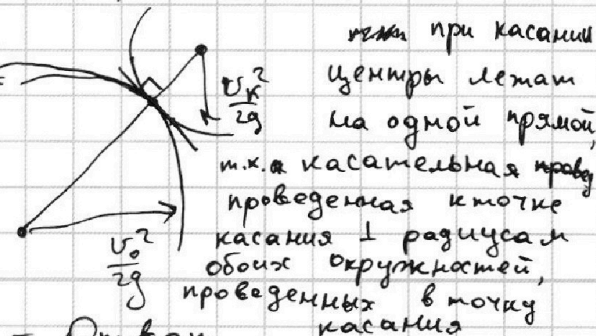 при касании
центры лежат
на одной прямой,
т.к. касательная
проведенная к точке
касания ⊥ радиусам
обоих окружностей,
проведенных в точку
касания
v_к²/2g
v_0²/2g